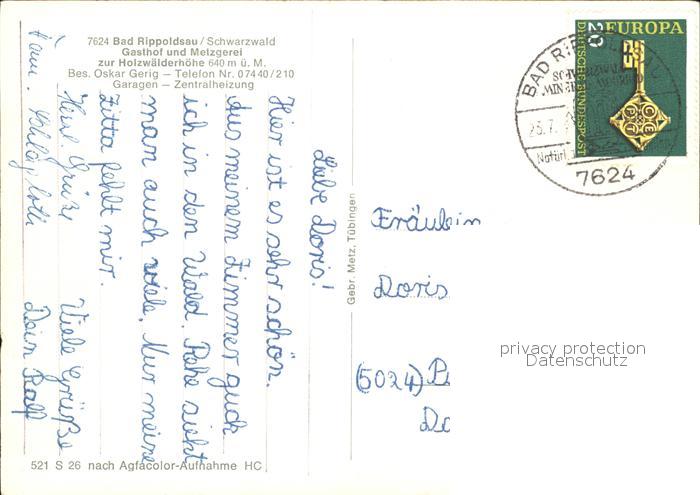 7624 Bad Rippoldsau / Schwarzwald
Gasthof und Metzgerei
zur Holzwälderhöhe 640 m ü. M.
Bes. Oskar Gerig — Telefon Nr. 07440/210
Garagen — Zentralheizung
Liebe Doris!
Hier ist es sehr schön.
Aus meinem Zimmer guck
ich in den Wald. Rehe sieht
man auch viele. Nur meine
Zitta fehlt mir.
Viele Grüße
Dein Ralf
Herzl. Grüße
Fam.
521 S 26 nach Agfacolor-Aufnahme HC
Gebr. Metz, Tübingen
EUROPA
20
DEUTSCHE BUNDESPOST
BAD RIPPOLDSAU
23.7.
7624
Fräulein
Doris
(5024)
privacy protection
Datenschutz